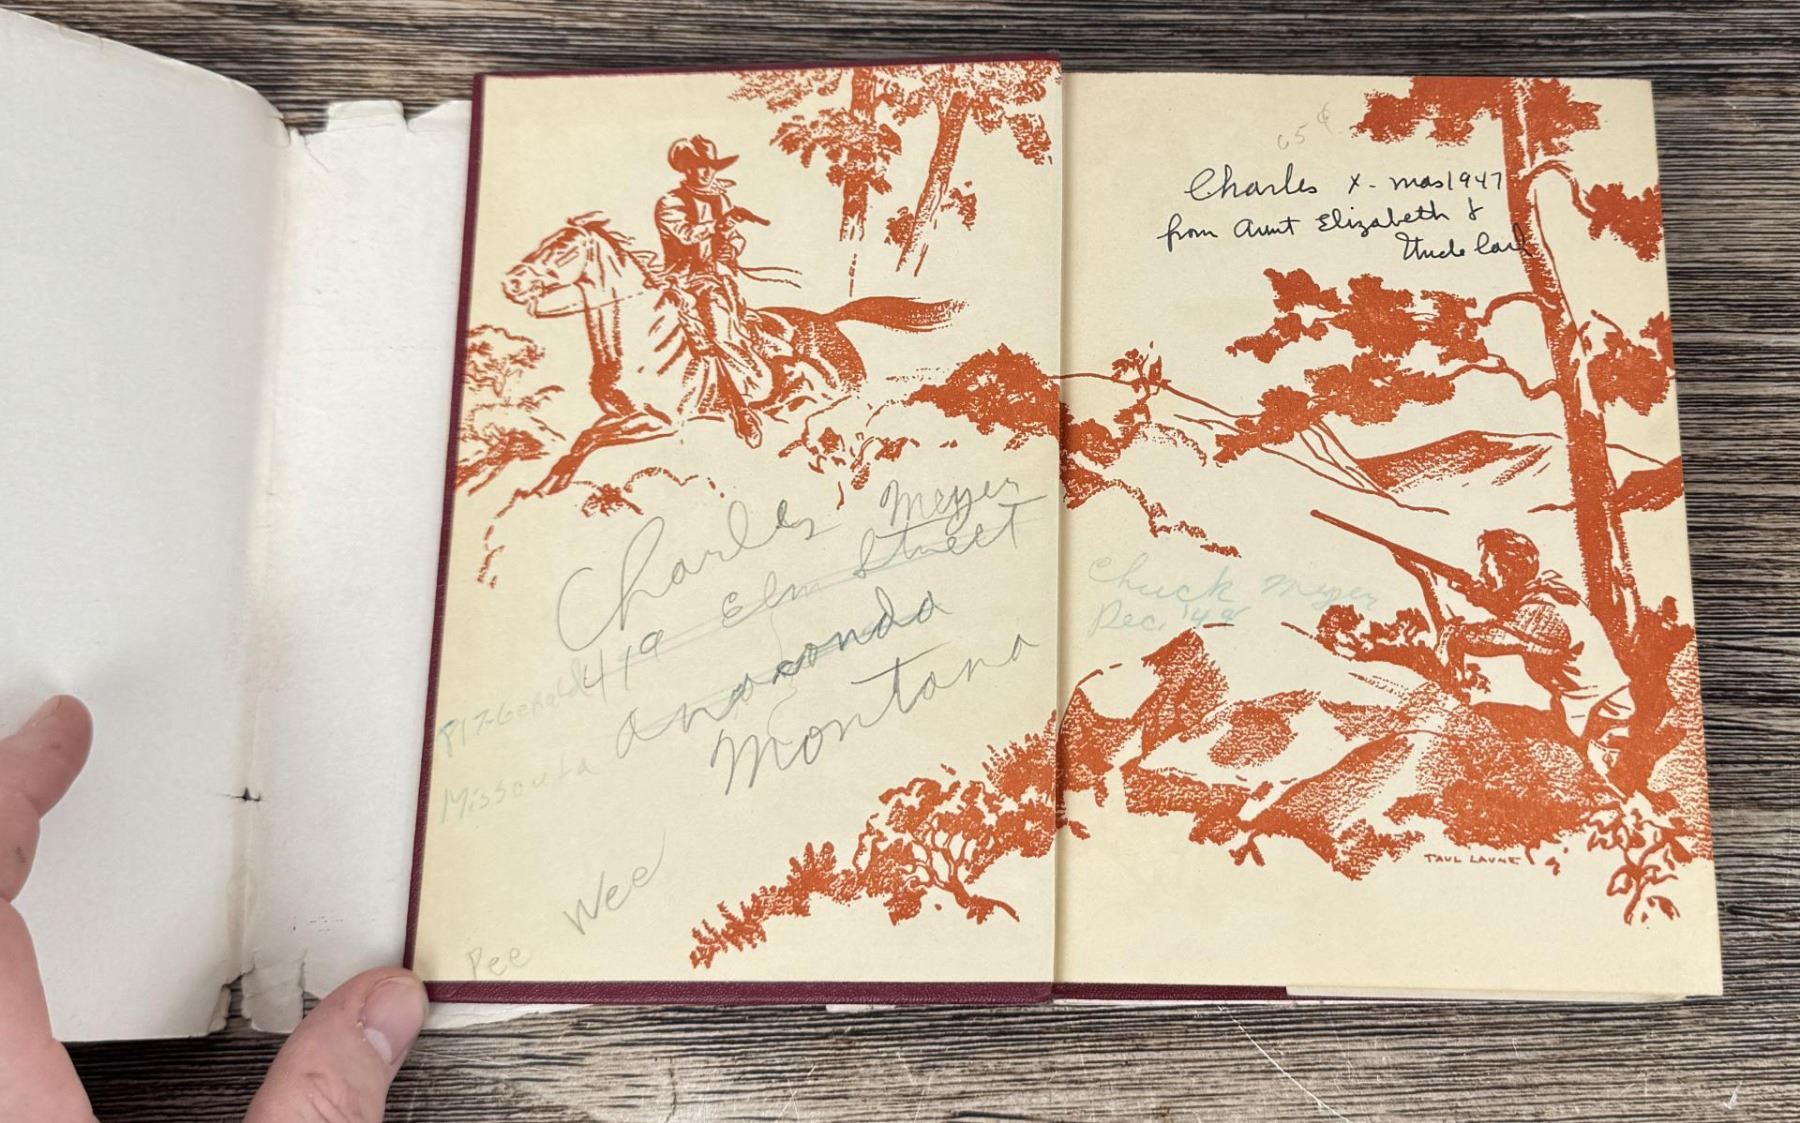 Charles Meyer
419 Elm Street
Anaconda
Montana
817-Gerald
Missoula
Wee
Pee
65¢
Charles X-mas 1947
from Aunt Elizabeth &
Uncle Carl
Chuck Meyer
Dec. '49
PAUL LAUNE